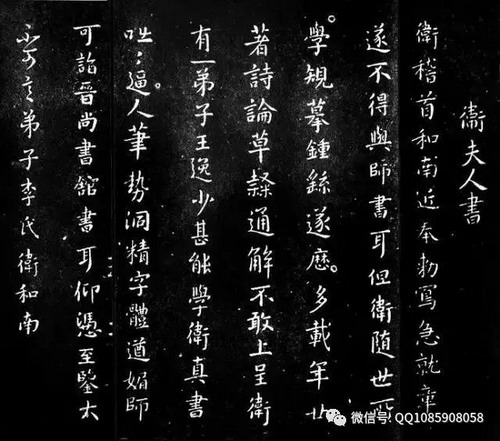 衛夫人書
衛稽首和南近奉勑寫急就章
遂不得與師書耳但衛隨世所
學規摹鍾繇遂歷多載年廿
著詩論草隸通解不敢上呈衛
有一弟子王逸少甚能學衛真書
咄々逼人筆勢洞精字體遒媚師
可詣晉尚書館書耳仰憑至鑒大
不可言弟子李氏衛和南
微信号: QQ1085908058